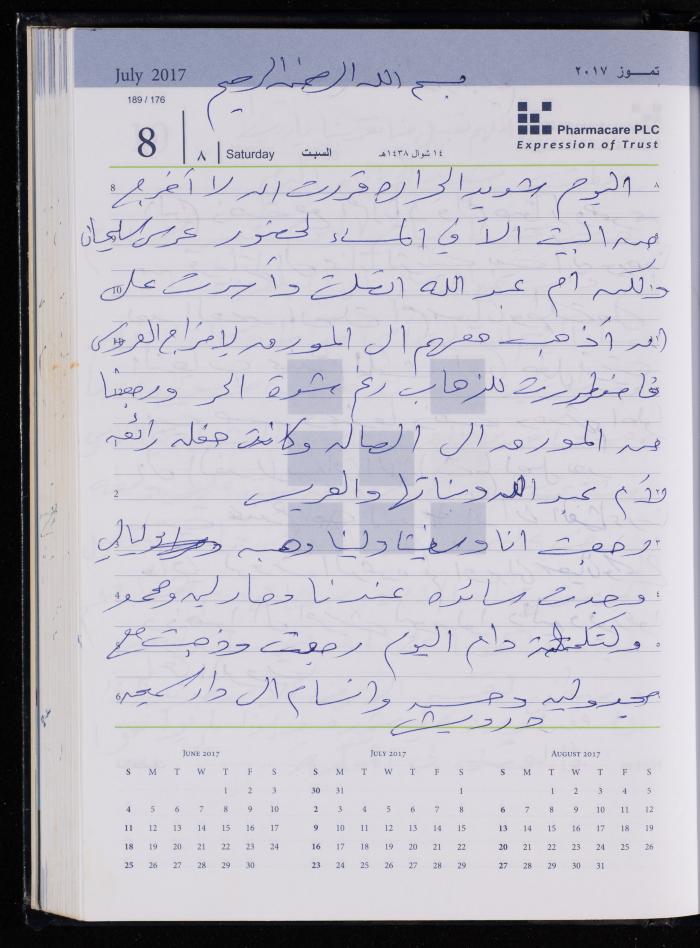 July 2017
تمــوز ٢٠١٧
بسم الله الرحمن الرحيم
189 / 176
8
٨
Saturday
السبت
١٤ شوال ١٤٣٨هـ
Pharmacare PLC
Expression of Trust
8 اليوم شديد الحرارة قررت ان لا أخرج ٨
من البيت الا في المساء لحضور عرس سليمان
10 ولكن ام عبد الله اتصلت وأصرت على
ان أذهب معهم ال لاخراج العروس
فاضطررت للذهاب رغم شدة الحر ورجعنا
من ال الصاله وكانت حفله رائعه
2 لأم عبد الله وبناتها والعريس
رجعت انا ولينا وهبه ٣
4 وجدت سائده عندنا ٤
دام اليوم رجعت وذهبت مع ٥
6 مجدوليه وانسام ال دار سميحه
درويش
JUNE 2017
S M T W T F S
1 2 3
4 5 6 7 8 9 10
11 12 13 14 15 16 17
18 19 20 21 22 23 24
25 26 27 28 29 30
JULY 2017
S M T W T F S
30 31 1
2 3 4 5 6 7 8
9 10 11 12 13 14 15
16 17 18 19 20 21 22
23 24 25 26 27 28 29
AUGUST 2017
S M T W T F S
1 2 3 4 5
6 7 8 9 10 11 12
13 14 15 16 17 18 19
20 21 22 23 24 25 26
27 28 29 30 31